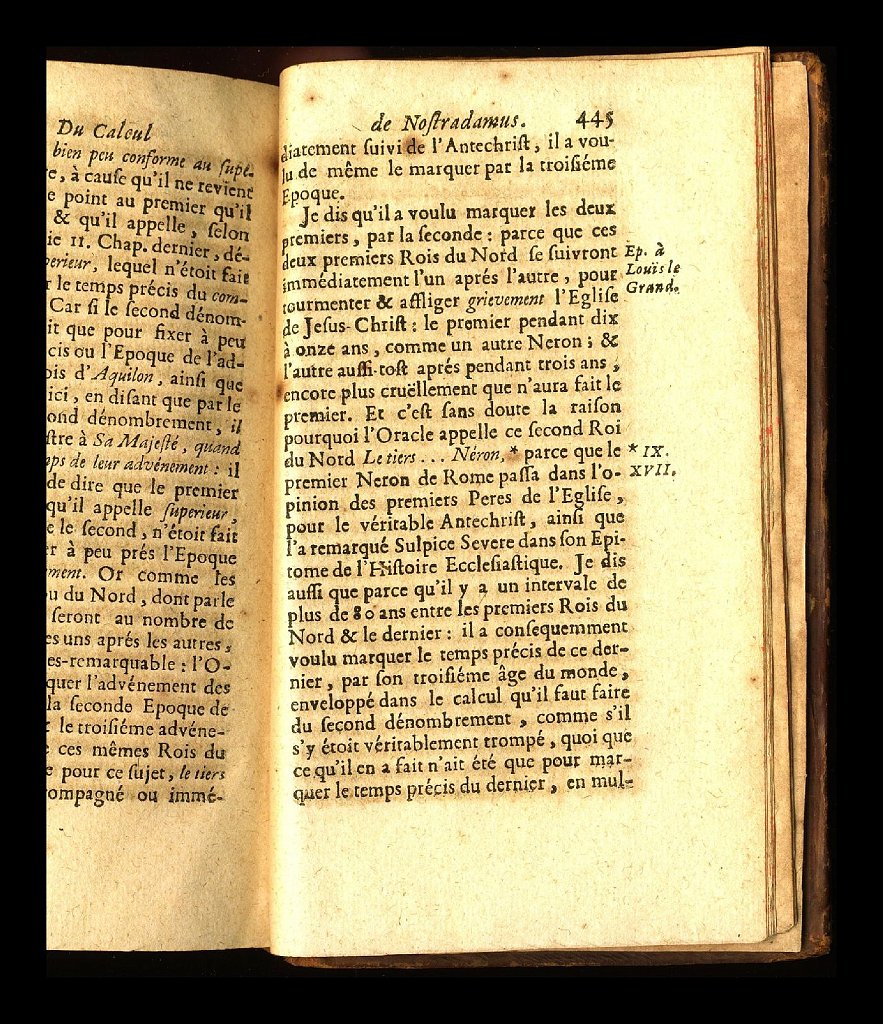 Du Calcul
bien peu conforme au supe-
re, à cauſe qu'il ne revient
e point au premier qu'il
& qu'il appelle, ſelon
ie 11. Chap. dernier, dé-
perieur, lequel n'étoit fait
r le temps précis du com-
Car ſi le ſecond dénom-
it que pour fixer à peu
cis ou l'Epoque de l'ad-
ois d'Aquilon, ainſi que
ici, en diſant que par le
ond dénombrement, il
ſtre à Sa Majeſté, quand
mps de leur advénement: il
de dire que le premier
qu'il appelle ſuperieur,
e le ſecond, n'étoit fait
r à peu prés l'Epoque
ment. Or comme les
u du Nord, dont parle
ſeront au nombre de
es uns aprés les autres,
es-remarquable: l'O-
quer l'advénement des
la ſeconde Epoque de
le troiſiéme advéne-
ces mêmes Rois du
e pour ce ſujet, le tiers
compagné ou immé-
de Noſtradamus. 445
diatement ſuivi de l'Antechriſt, il a vou-
lu de même le marquer par la troiſiéme
Epoque.
Je dis qu'il a voulu marquer les deux
premiers, par la ſeconde: parce que ces
deux premiers Rois du Nord ſe ſuivront
immédiatement l'un aprés l'autre, pour
tourmenter & affliger grievement l'Egliſe
de Jeſus-Chriſt: le premier pendant dix
à onze ans, comme un autre Neron; &
l'autre auſſi-toſt aprés pendant trois ans,
encore plus cruëllement que n'aura fait le
premier. Et c'eſt ſans doute la raiſon
pourquoi l'Oracle appelle ce ſecond Roi
du Nord Le tiers... Néron, * parce que le
premier Neron de Rome paſſa dans l'o-
pinion des premiers Peres de l'Egliſe,
pour le véritable Antechriſt, ainſi que
l'a remarqué Sulpice Severe dans ſon Epi-
tome de l'Hiſtoire Eccleſiaſtique. Je dis
auſſi que parce qu'il y a un intervale de
plus de 80 ans entre les premiers Rois du
Nord & le dernier: il a conſequemment
voulu marquer le temps précis de ce der-
nier, par ſon troiſiéme âge du monde,
enveloppé dans le calcul qu'il faut faire
du ſecond dénombrement, comme s'il
s'y étoit véritablement trompé, quoi que
ce qu'il en a fait n'ait été que pour mar-
quer le temps précis du dernier, en mul-
Ep. à
Louis le
Grand.
* IX.
XVII.